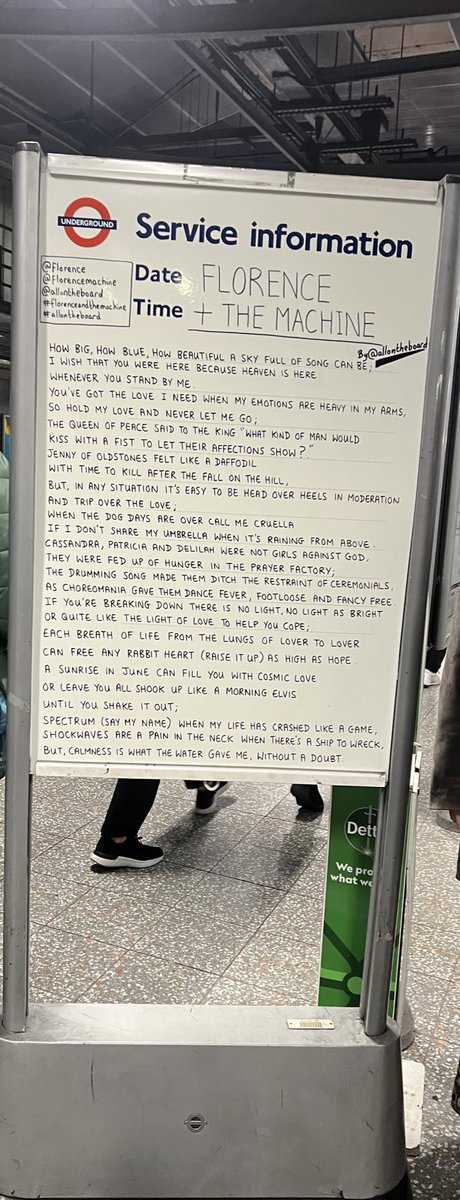 UNDERGROUND
Service information
@florence
@florencemachine
@allontheboard
#florenceandthemachine
#allontheboard
Date FLORENCE
Time + THE MACHINE
By @allontheboard
HOW BIG, HOW BLUE, HOW BEAUTIFUL A SKY FULL OF SONG CAN BE;
I WISH THAT YOU WERE HERE BECAUSE HEAVEN IS HERE
WHENEVER YOU STAND BY ME.
YOU'VE GOT THE LOVE I NEED WHEN MY EMOTIONS ARE HEAVY IN MY ARMS,
SO HOLD MY LOVE AND NEVER LET ME GO;
THE QUEEN OF PEACE SAID TO THE KING "WHAT KIND OF MAN WOULD
KISS WITH A FIST TO LET THEIR AFFECTIONS SHOW?"
JENNY OF OLDSTONES FELT LIKE A DAFFODIL
WITH TIME TO KILL AFTER THE FALL ON THE HILL,
BUT, IN ANY SITUATION IT'S EASY TO BE HEAD OVER HEELS IN MODERATION
AND TRIP OVER THE LOVE;
WHEN THE DOG DAYS ARE OVER CALL ME CRUELLA
IF I DON'T SHARE MY UMBRELLA WHEN IT'S RAINING FROM ABOVE.
CASSANDRA, PATRICIA AND DELILAH WERE NOT GIRLS AGAINST GOD,
THEY WERE FED UP OF HUNGER IN THE PRAYER FACTORY;
THE DRUMMING SONG MADE THEM DITCH THE RESTRAINT OF CEREMONIALS,
AS CHOREOMANIA GAVE THEM DANCE FEVER, FOOTLOOSE AND FANCY FREE.
IF YOU'RE BREAKING DOWN THERE IS NO LIGHT, NO LIGHT AS BRIGHT
OR QUITE LIKE THE LIGHT OF LOVE TO HELP YOU COPE;
EACH BREATH OF LIFE FROM THE LUNGS OF LOVER TO LOVER
CAN FREE ANY RABBIT HEART (RAISE IT UP) AS HIGH AS HOPE.
A SUNRISE IN JUNE CAN FILL YOU WITH COSMIC LOVE
OR LEAVE YOU ALL SHOOK UP LIKE A MORNING ELVIS
UNTIL YOU SHAKE IT OUT;
SPECTRUM (SAY MY NAME) WHEN MY LIFE HAS CRASHED LIKE A GAME,
SHOCKWAVES ARE A PAIN IN THE NECK WHEN THERE'S A SHIP TO WRECK,
BUT, CALMNESS IS WHAT THE WATER GAVE ME, WITHOUT A DOUBT.
Dett
We pro
what we